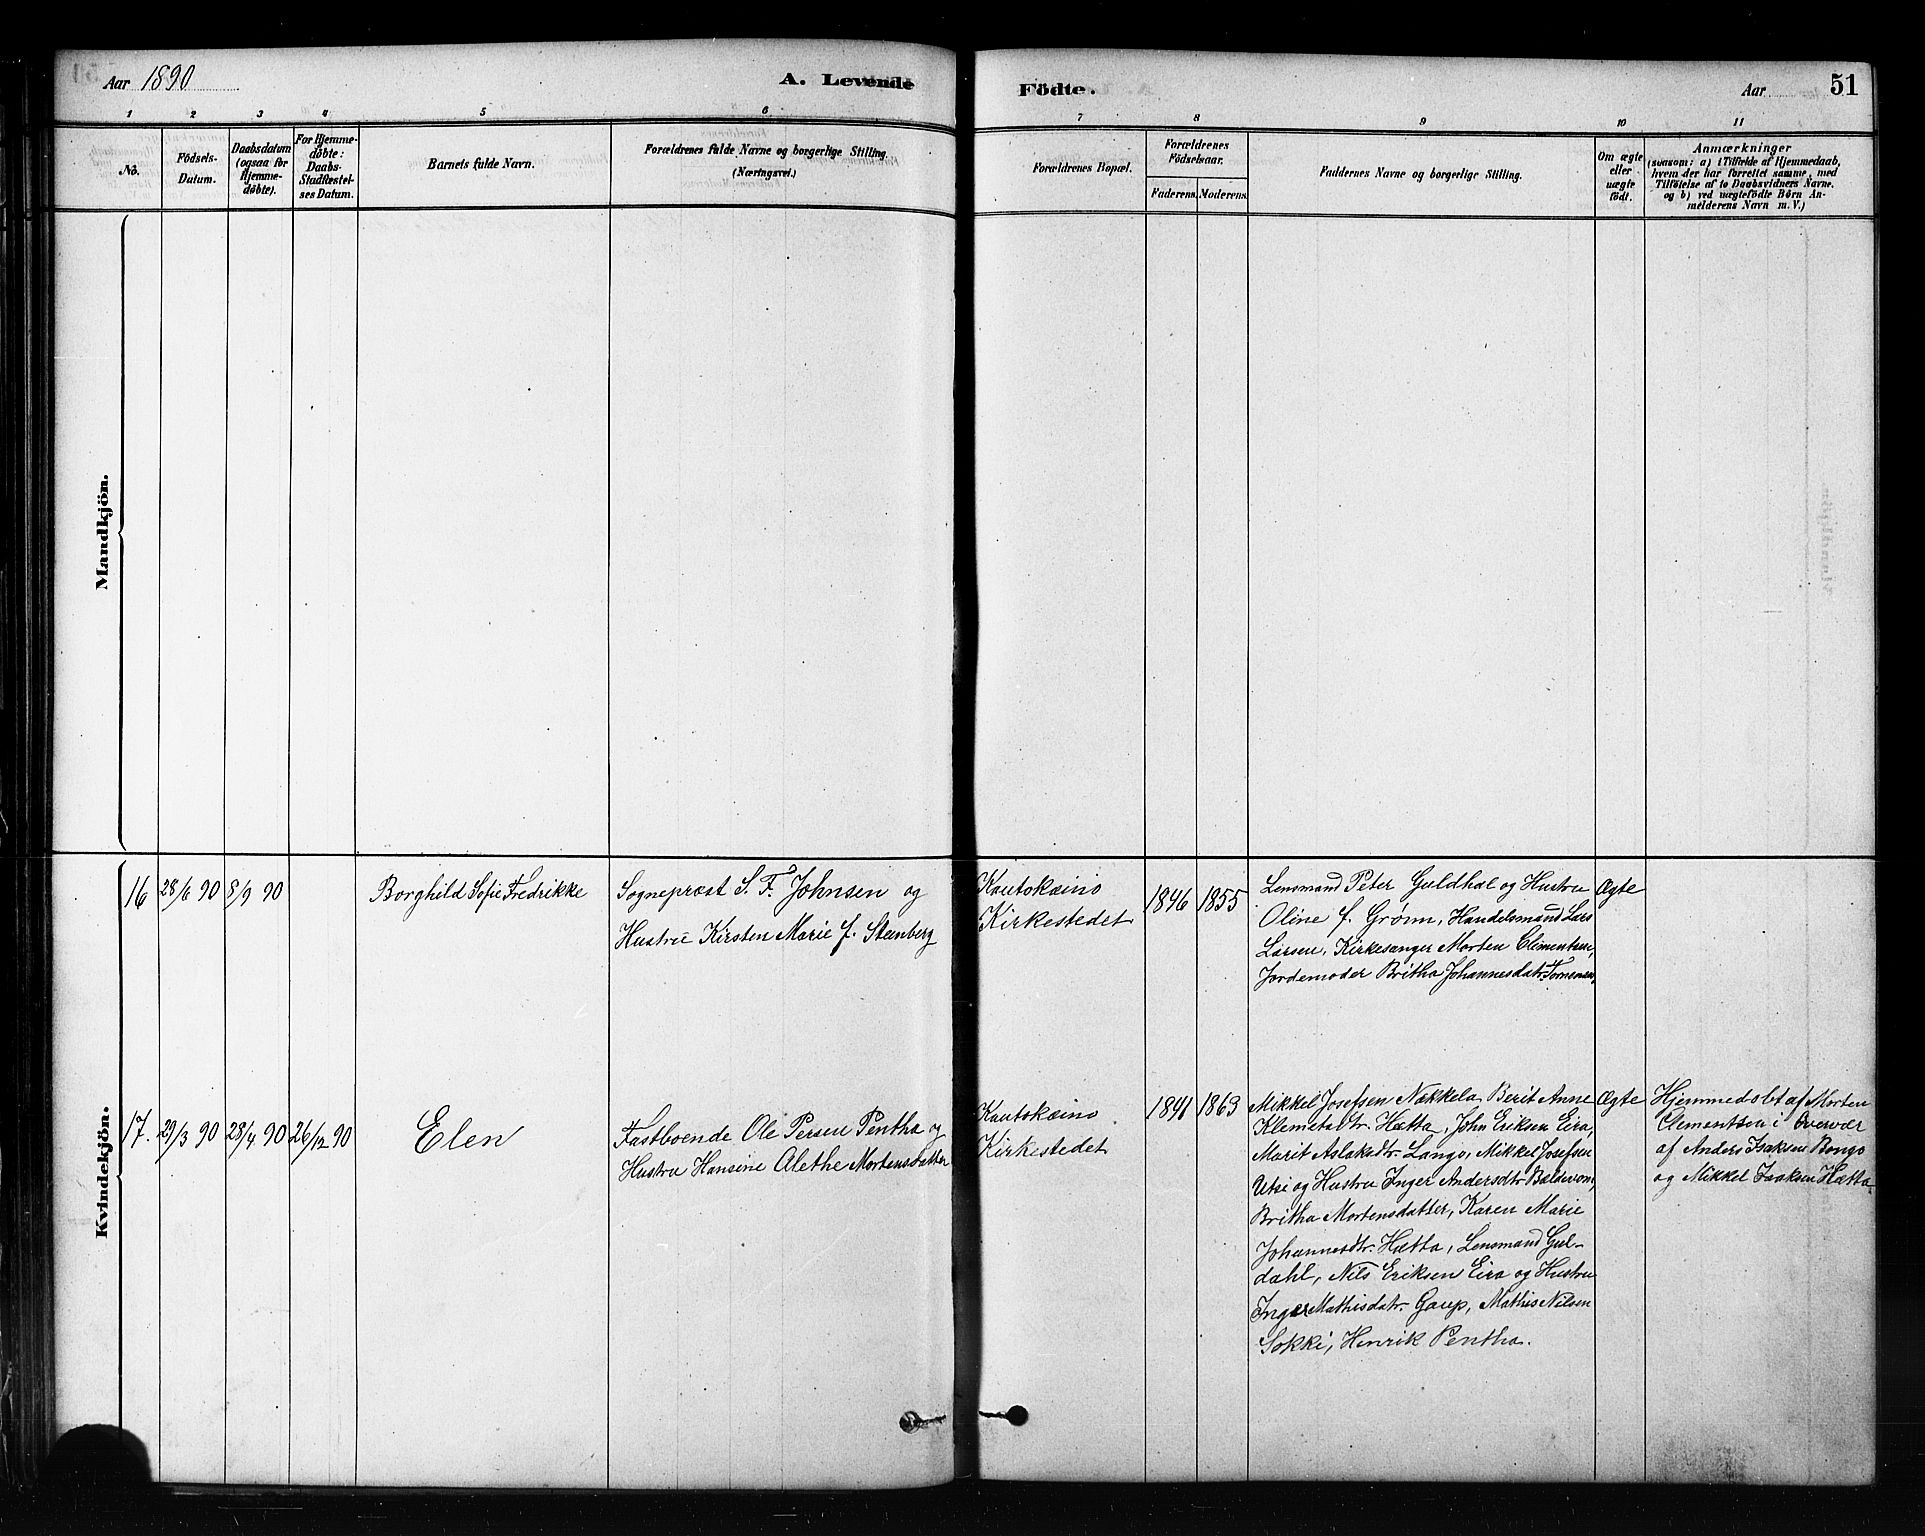 Aar 1890
A. Levende
Födte.
Aar
51
1 2 3 4 5 6 7 8 9 10 11
No.
Födsels-
Datum.
Daabsdatum
(ogsaa for
Hjemme-
døbte).
For Hjemme-
døbte:
Daabs-
Stadfæstel-
ses Datum.
Barnets fulde Navn.
Forældrenes fulde Navne og borgerlige Stilling.
(Næringsvei.)
Forældrenes Bopæl.
Forældrenes
Födselsaar.
Faderens. Moderens.
Faddernes Navne og borgerlige Stilling.
Om ægte
eller
uægte
födt.
Anmærkninger
(saasom: a) i Tilfælde af Hjemmedaab,
hvem der har forrettet samme, med
Tilföielse af to Daabsvidners Navne.
og b) ved uægtefödte Börn An-
melderens Navn m. V.)
Mandkjön.
Kvindekjön.
16 28/6 90 8/9 90
Borghild Sofie Fredrikke
Sogneprost S. F. Johnsen og
Hustru Kirsten Marie f. Steinberg
Kautokæino
Kirkestedet
1846 1855
Lensmand Peter Guldhal og Hustru
Oline f. Grønn, Handelsmand Lars
Larsen, Kirkesanger Morten Clementsen,
Jordemoder Britha Johannesdatr.
Ægte
17. 29/3 90 28/4 90 26/12 90
Elen
Fastboende Ole Persen Pentha og
Hustru Hansine Alethe Mortensdatter
Kautokæino
Kirkestedet
1841 1863
Mikkel Josefsen Nækkela Berit Anne
Klemetsdtr. Hætta, John Eriksen Eira,
Marit Aslaksdtr. Lango, Mikkel Josefsen
Utsi og Hustru Inger Andersdtr. Bældevom,
Britha Mortensdatter, Karen Marie
Johannesdtr. Hætta, Lensmand Gul-
dahl, Nils Eriksen Eira og Hustru
Inger Mathisdatr. Gaup, Mathis Nilsen
Sokki, Henrik Pentha.
Ægte
Hjemmedøbt af Morten
Clementsen i Overvær
af Anders Isaksen Bongo
og Mikkel Isaksen Hætta